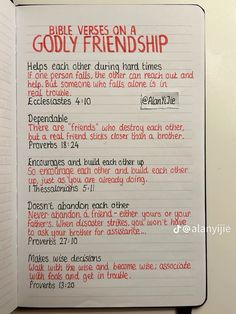 BIBLE VERSES ON A
GODLY FRIENDSHIP
Helps each other during hard times
If one person falls, the other can reach out and
help. But someone who falls alone is in
real trouble.
Ecclesiastes 4:10
@AlanYiJie
Dependable
There are "friends" who destroy each other,
but a real friend sticks closer than a brother.
Proverbs 18:24
Encourages and build each other up
So encourage each other and build each other
up, just as you are already doing.
1 Thessalonians 5:11
Doesn't abandon each other
Never abandon a friend - either yours or your
father's. When disaster strikes, you won't have
to ask your brother for assistance...
Proverbs 27:10
@alanyijie
Makes wise decisions
Walk with the wise and become wise; associate
with fools and get in trouble.
Proverbs 13:20